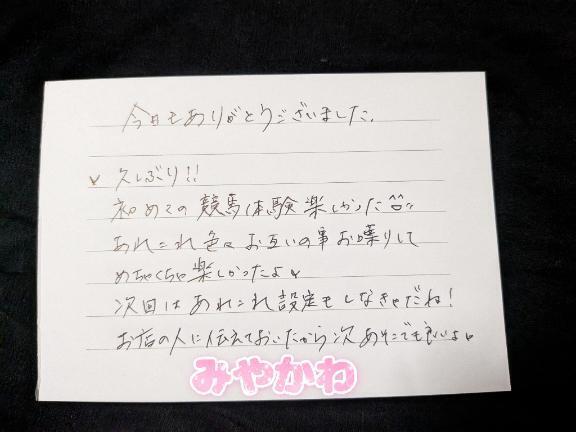 今日もありがとうございました。
久しぶり!!
初めての競馬体験楽しかった
あれこれ色々お互いの事お喋りして
めちゃくちゃ楽しかったよ♥
次回はあれこれ設定もしなきゃだね!
お店の人に伝えておいたから次あそこでも良いよ♥
みやかわ